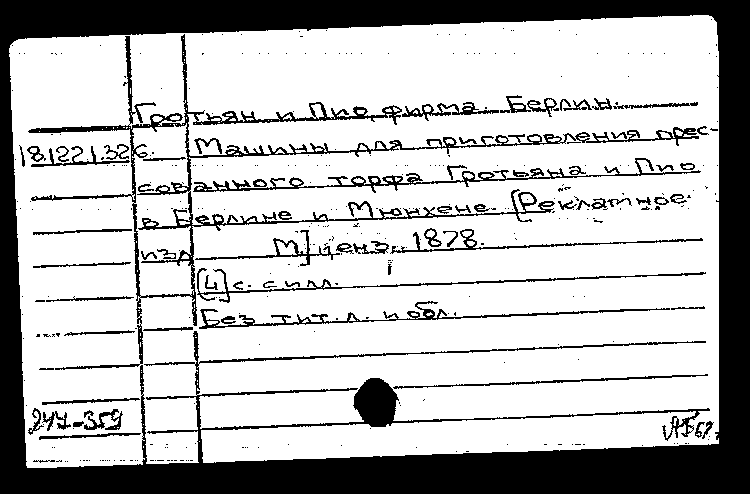 Гротьян и Пио, фирма. Берлин.
18.122.1.326. Машины для приготовления прес-
сованного торфа Гротьяна и Пио
в Берлине и Мюнхене. [Рекламное
изд М.] ценз. 1878.
[4] с. с илл.
Без тит. л. и обл.
247-359